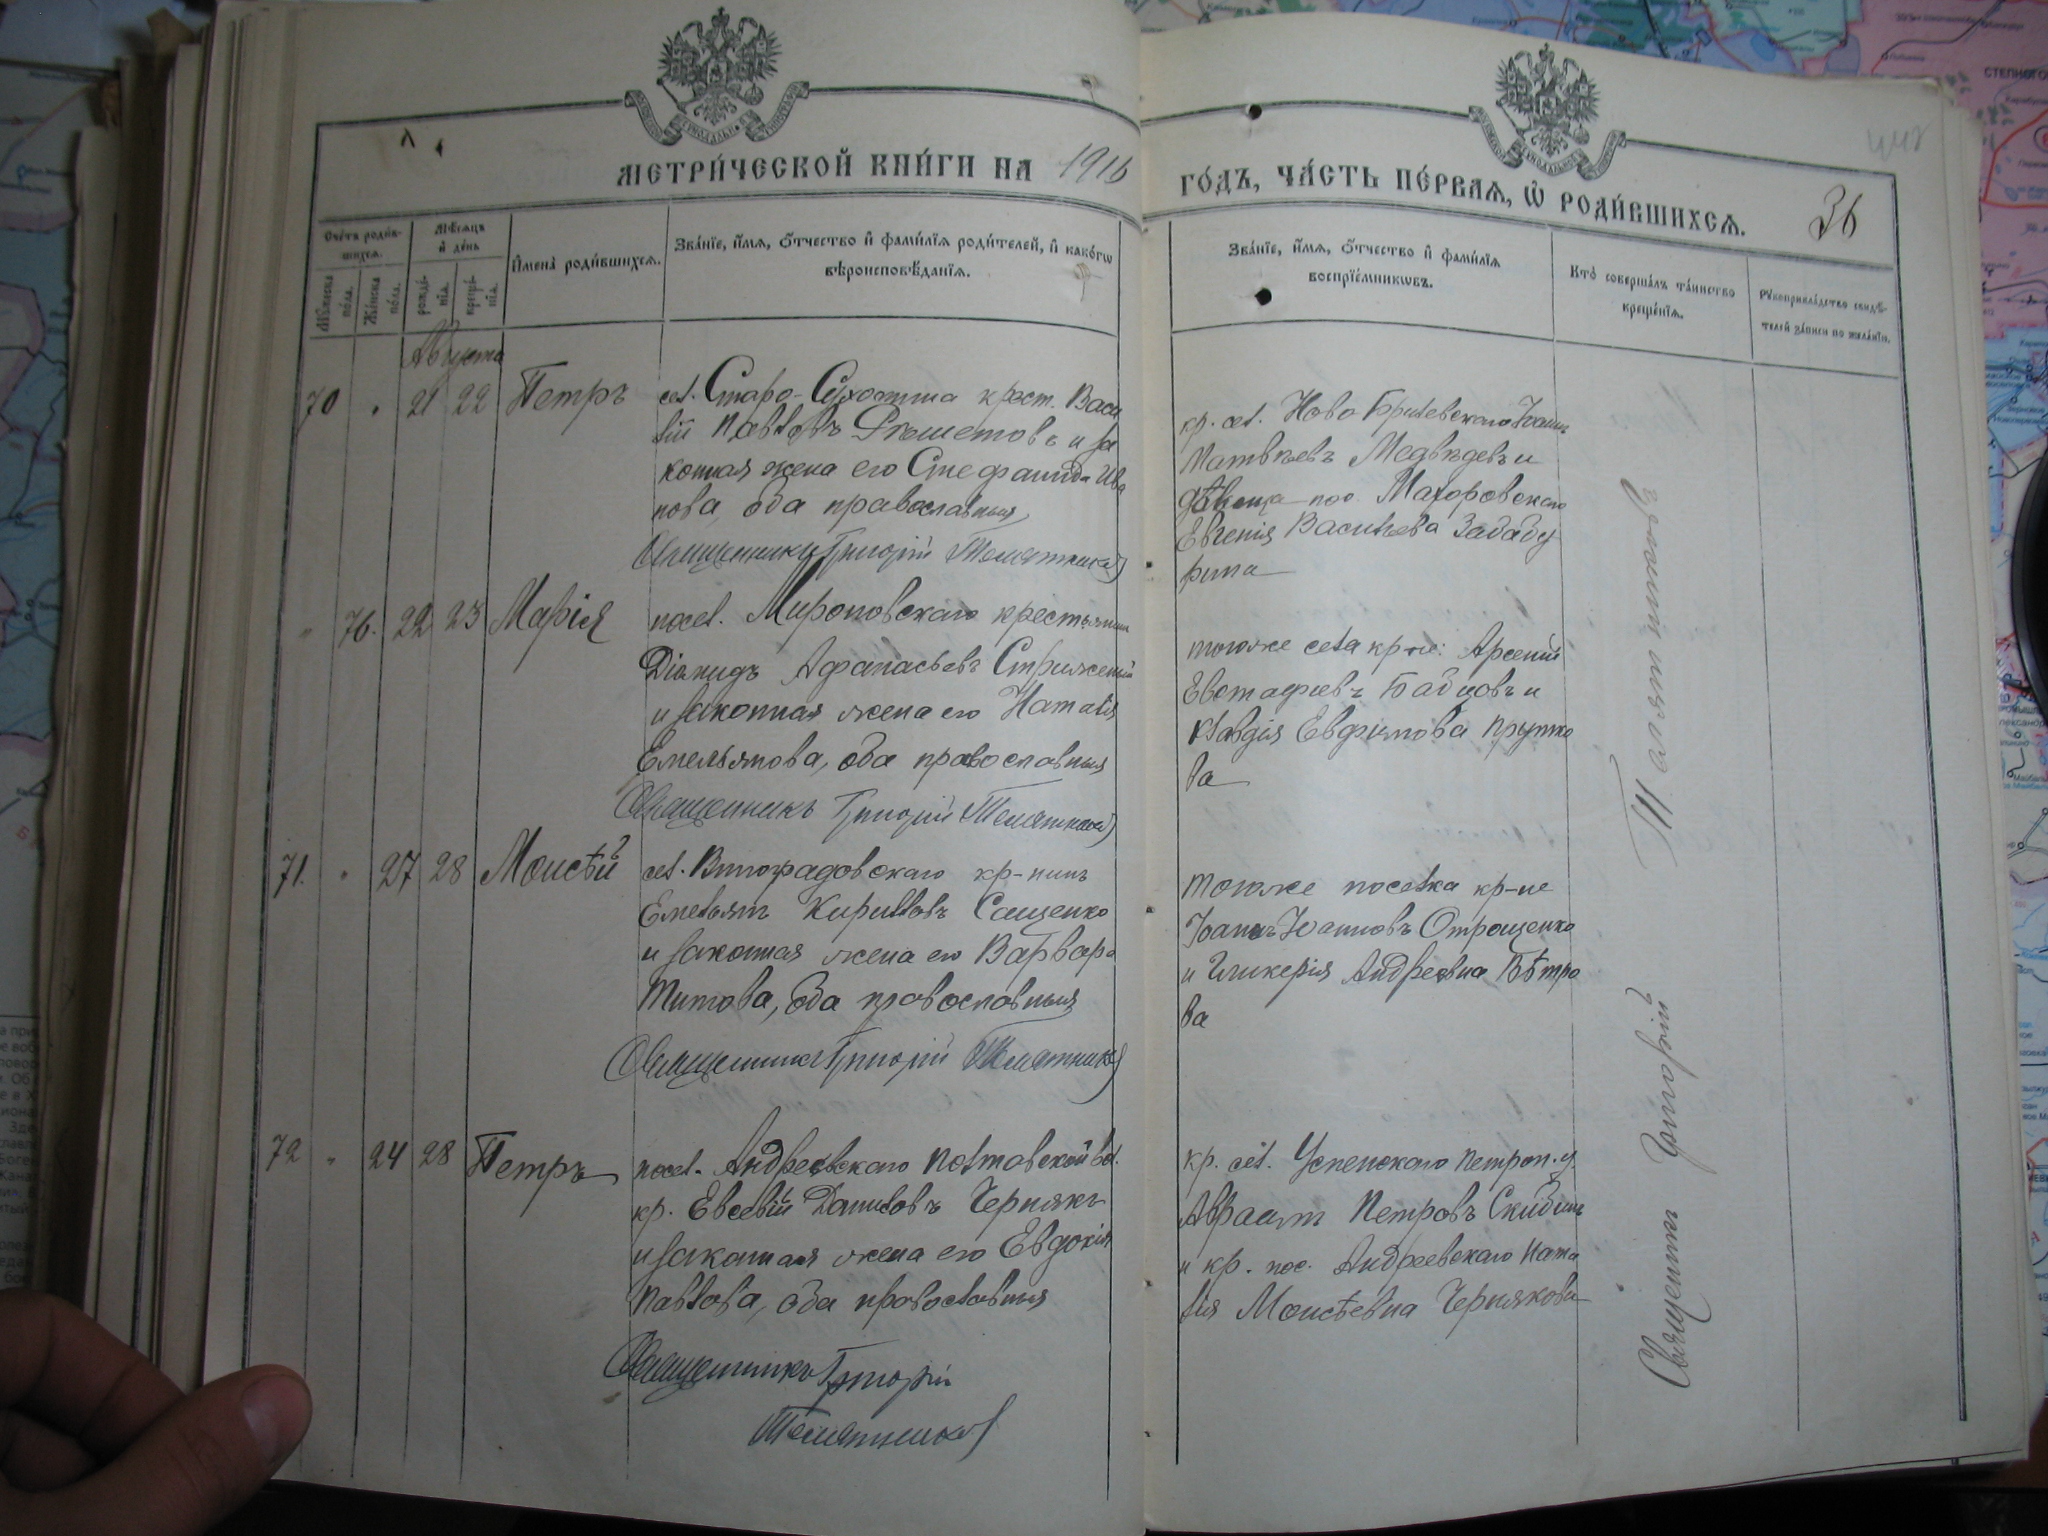 МЕТРИ́ЧЕСКОЙ КНИ́ГИ НА 1916
ГО́ДЪ, ЧА́СТЬ ПЕ́РВАѦ, Ѽ РОДИ́ВШИХСѦ.
36
Сче́тъ роди́в-
шихсѧ.
Мѣ́сѧцъ
и҆ де́нь
Му́жеска
по́ла.
Же́нска
по́ла.
рожде́-
нїѧ.
креще́-
нїѧ.
И҆мена̀ роди́вшихсѧ.
Зва́нїе, и҆́мѧ, ѻ҆́тчество и҆ фами́лїѧ роди́телей, и҆ како́гѡ
вѣроисповѣ́данїѧ.
Зва́нїе, и҆́мѧ, ѻ҆́тчество и҆ фами́лїѧ
воспрїе́мникѡвъ.
Кто̀ соверша́лъ та́инство
креще́нїѧ.
Рꙋкоприкла́дство свидѣ́-
телей за́писи по жела́нїю.
Августа
70 " 21 22 Петръ
сел. Старо-Сухотина крест. Васи
лій Павловъ Рѣшетовъ и за
конная жена его Стефанида Ива
нова, оба православныя
Священникъ Григорій
кр. сел. Ново Іоаннъ
Матвѣевъ Медвѣдевъ и
дѣвица пос. Макоровскаго
Евгенія Васильева
рина
" 76. 22 23 Марія
посел. Мироновскаго крестьянинъ
Діомидъ Афанасьевъ Стриженый
и законная жена его Наталія
Емельянова, оба православныя
Священникъ Григорій
тогоже села кр-не: Арсеній
Евстафіевъ Бабцовъ и
Клавдія Евфимова
ва
71. " 27 28 Моисѣй
сел. Виноградовскаго кр-нинъ
Емельянъ Кирилловъ Сащенко
и законная жена его Варвара
Титова, оба православныя
Священникъ Григорій
тогоже поселка кр-не
Іоаннъ Іоанновъ Отрощенко
и Гликерія Андреевна Пѣтро
ва
72 " 24 28 Петръ
посел. Андреевскаго Полтавской вол.
кр. Евсевій Даниловъ Чернякъ
и законная жена его Евдокія
Павлова, оба православныя
Священникъ Григорій
кр. сел. Успенскаго Петроп. у.
Авраамъ Петровъ Скибинъ
и кр. пос. Андреевскаго Ната
лія Моисѣевна Чернякова
Священникъ Григорій